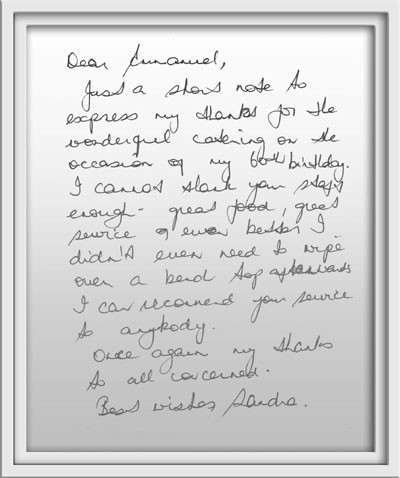 Dear Emmanuel,
Just a short note to
express my thanks for the
wonderful catering on the
occasion of my 60th birthday.
I cannot thank your staff
enough - great food, great
service & even better I
didn't even need to wipe
over a bench top afterwards
I can recomend your service
to anybody.
Once again my thanks
to all concerned.
Best wishes Sandra.